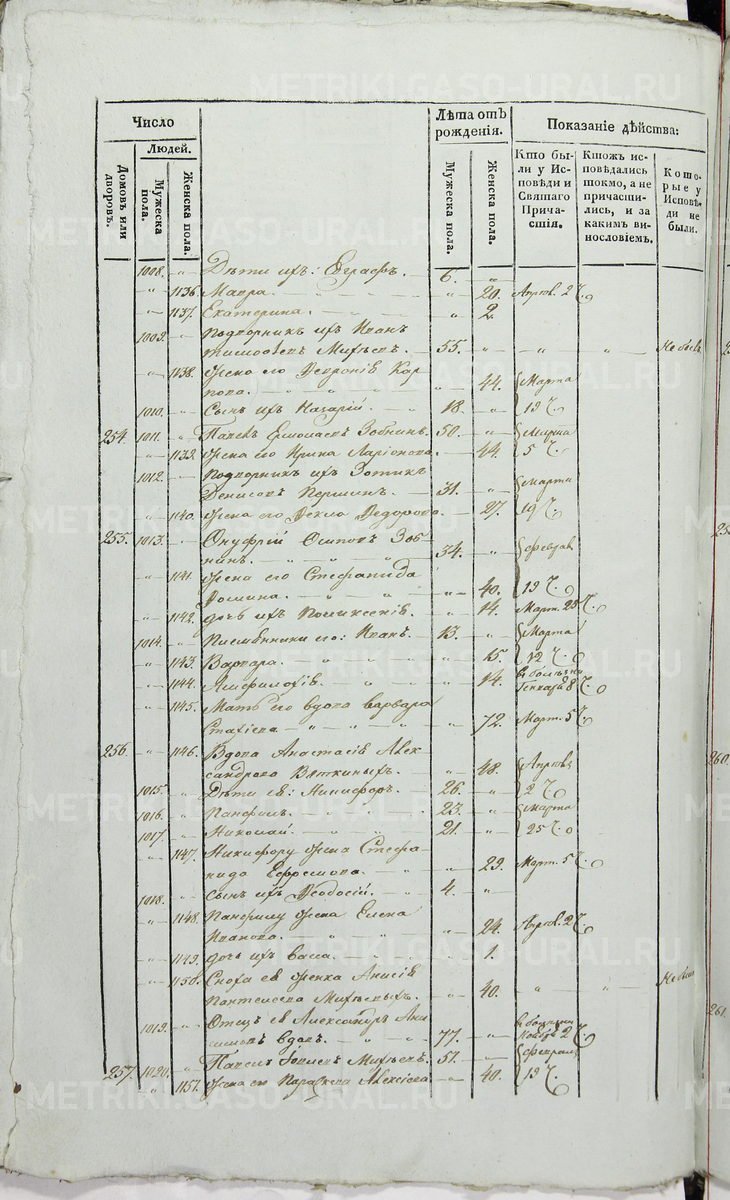 METRIKI.GASO-URAL.RU
Число
Людей.
Домовъ или дворовъ.
Мужеска пола.
Женска пола.
Лѣта отъ рожденія.
Мужеска пола.
Женска пола.
Показаніе дѣйства:
Кто были у Исповѣди и Святаго Причастія.
Ктожъ исповѣдались токмо, а не причастились, и за какимъ винословіемъ.
Которые у Исповѣди не были.
1008. „ Дѣти ихъ: Евграфъ. 6. „
„ 1136. Мавра. „ 20. Апрѣл. 2 Ч.
„ 1137. Екатерина. „ 2.
1009. „ Подворникъ ихъ Иванъ
Тимофеевъ 55. „ „ „ Не былъ
„ 1138. Жена его Февронія Кар
пова. „ 44. Марта
1010. „ Сынъ ихъ Назарій. 18. „ 19 Ч.
254. 1011. „ Павелъ Ермолаевъ Зобнинъ. 50. „ Марта
„ 1139. Жена его Ирина Ларіонова. „ 44. 5 Ч.
1012. „ Подворникъ ихъ Зотикъ
Денисовъ Першинъ. 31. „ Марта
„ 1140. Жена его Фекла Федорова. „ 27. 19 Ч.
255. 1013. „ Онуфрій Осиповъ Зоб
нинъ. 34. „ Феврал
„ 1141. Жена его Стефанида
Фомина. „ 40. 19 Ч.
„ 1142. Дочь ихъ Поликсенія. „ 14. Март. 25 Ч.
1014. „ его: Иванъ. 13. „ Марта
„ 1143. Варвара. „ 15. 12 Ч.
„ 1144. „ 14. Генваря 8 Ч.
„ 1145. Мать его вдова Варвара
„ 72. Март. 5 Ч.
256. „ 1146. Вдова Анастасія Алек
сандрова Вяткиныхъ. „ 48. Апрѣля
1015. „ Дѣти ея: Никифоръ. 26. „ 2 Ч.
1016. „ Панфилъ. 23. „ Марта
1017. „ Николай. 21. „ 25 Ч.
„ 1147. Никифору жена Стефа
нида Ефремова. „ 29. Март. 5 Ч.
1018. „ Сынъ ихъ Феодосій. 4. „
„ 1148. Панфилу жена Елена
Иванова. „ 24. Апрѣл. 2 Ч.
„ 1149. Дочь ихъ Васса. „ 1.
„ 1150. Сноха ея женка Анисія
Пантелеева „ 40. „ „ Не была
1019. „ Отецъ ея Александръ
вдовъ. 77. „ 2 Ч.
257. 1020. „ Павелъ 51. „ Февраля
„ 1151. Жена его Параскева Алексіева „ 40. 19 Ч.
260.
261.